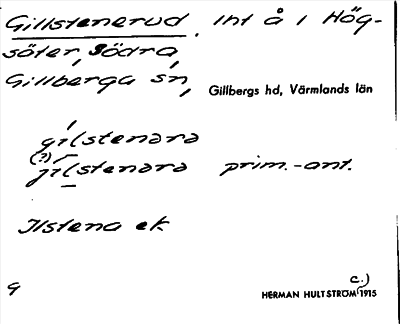 Gillstenerud. Int å i Hög-
säter, Södra,
Gillberga sn,
Gillbergs hd, Värmlands län
gilstenərə
(?)
jilstenərə prim.-ant.
Ilstena ek
9
c.)
HERMAN HULTSTRÖM 1915